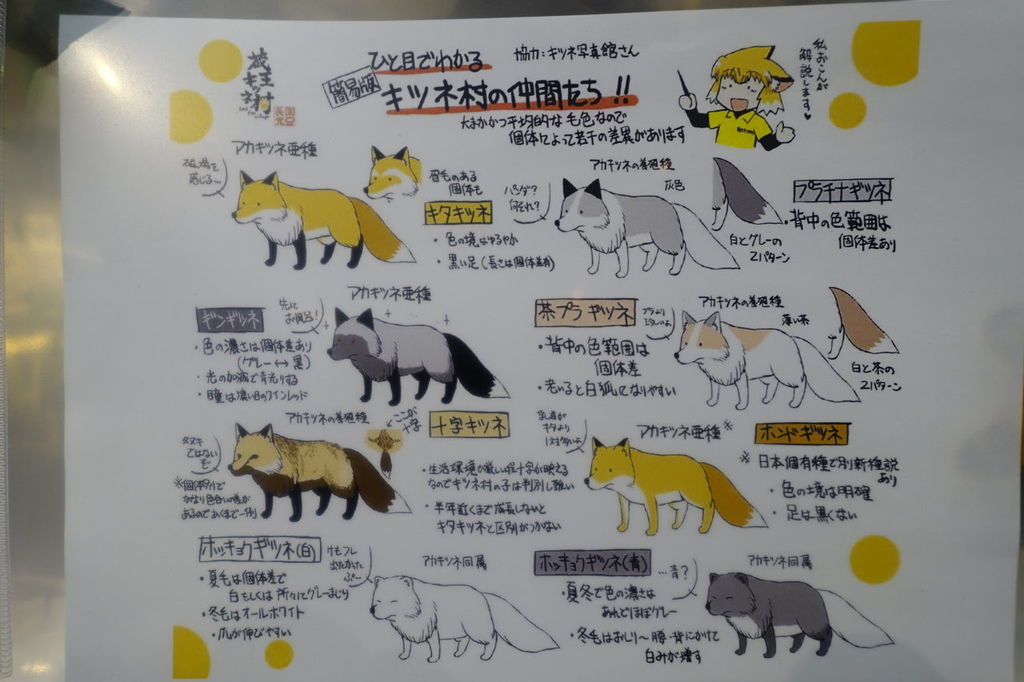 蔵王
キツネ村
簡易版
ひと目でわかる
キツネ村の仲間たち!!
協力:キツネ写真館さん
大まかかつ平均的な毛色なので
個体によって若干の差異があります
私おこんが
解説します♥
アカギツネ亜種
眉毛のある
個体も
キタキツネ
・色の境はゆるやか
・黒い足(長さは個体差有)
アカギツネの養殖種
灰色
パンダ?
何それ?
白とグレーの
2パターン
プラチナギツネ
・背中の色範囲は
個体差あり
ギンギツネ
アカギツネ亜種
・色の濃さは個体差あり
(グレー↔黒)
・光の加減で青光りする
・瞳は濃い目のワインレッド
茶プラギツネ
アカギツネの養殖種
薄い茶
・背中の色範囲は
個体差
・老いると白狐になりやすい
白と茶の
2パターン
アカギツネの養殖種
タヌキ
ではない
ぞ
※個体別で
かなり色合いの差が
あるのであくまで一例
ここが
十字
十字キツネ
・生活環境が厳しい程十字が映える
なのでキツネ村の子は判別し難い
・半年近くまで成長しないと
キタキツネと区別がつかない
アカギツネ亜種※
ホンドギツネ
※日本固有種で別新種説
あり
・色の境は明確
・足は黒くない
ホッキョクギツネ(白)
・夏毛は個体差で
白もしくは所々にグレーまじり
・冬毛はオールホワイト
・爪が伸びやすい
アカギツネ同属
ホッキョクギツネ(青)
…青?
アカギツネ同属
・夏冬で色の濃さは
あれどほぼグレー
・冬毛はおしり〜腰・背にかけて
白みが増す